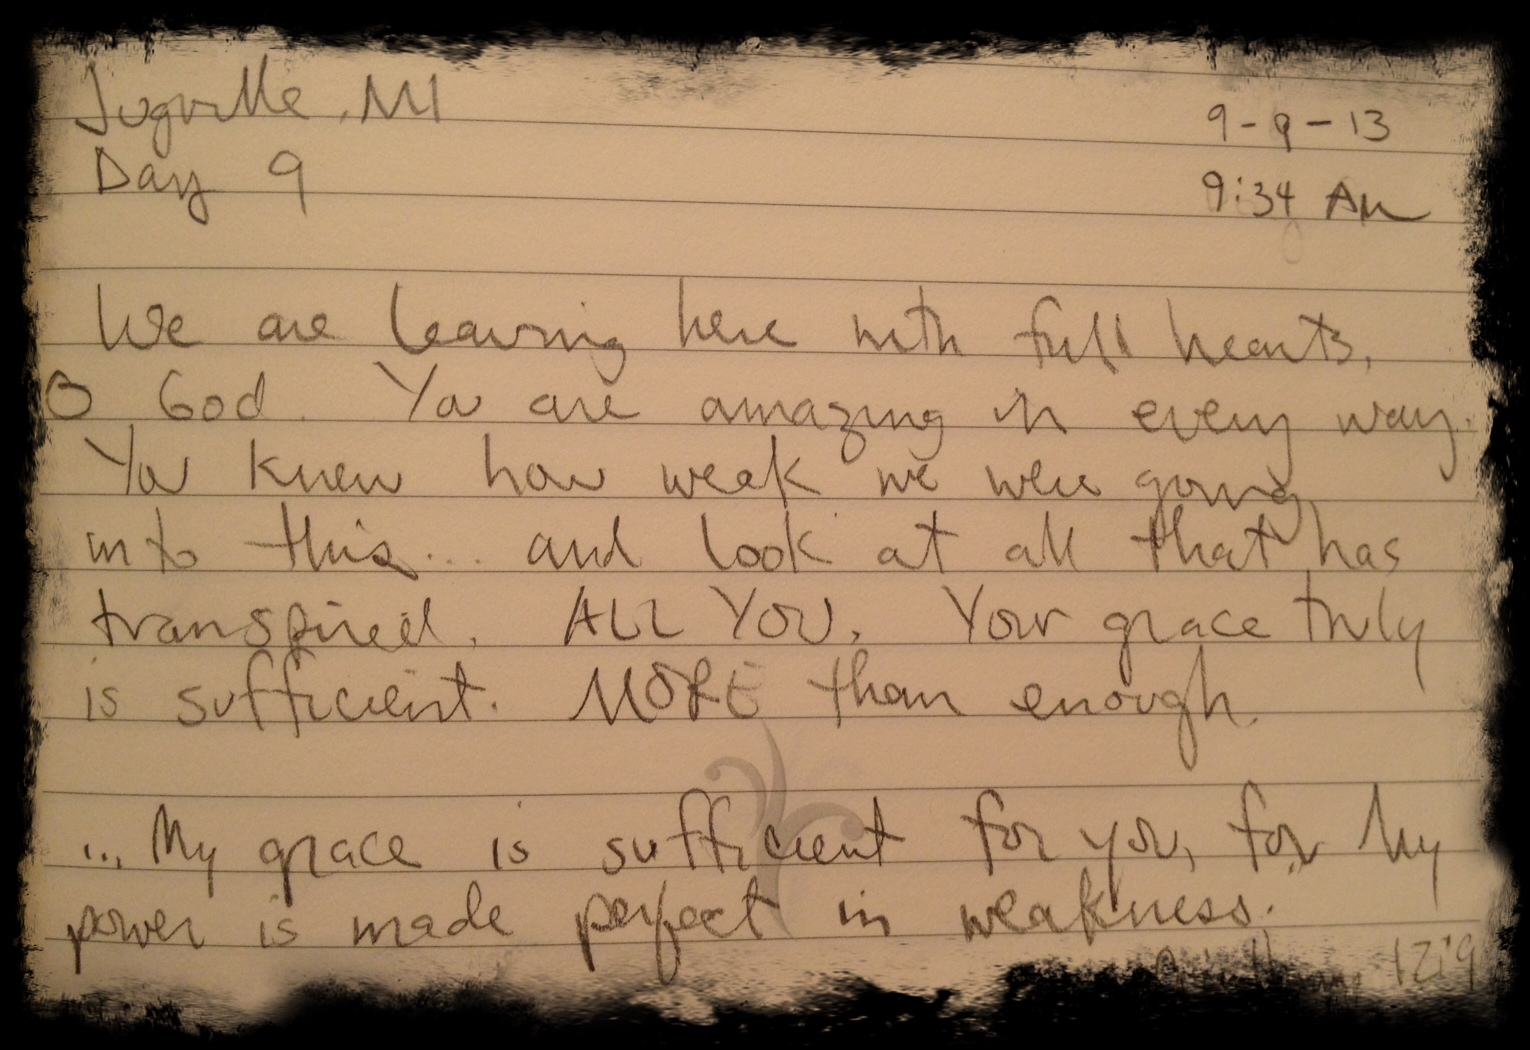 Jugville, MI
9-9-13
Day 9
9:34 AM
We are leaving here with full hearts,
O God. You are amazing in every way.
You knew how weak we were going
into this... and look at all that has
transpired. ALL YOU. Your grace truly
is sufficient. MORE than enough.
... My grace is sufficient for you, for My
power is made perfect in weakness.
12:9